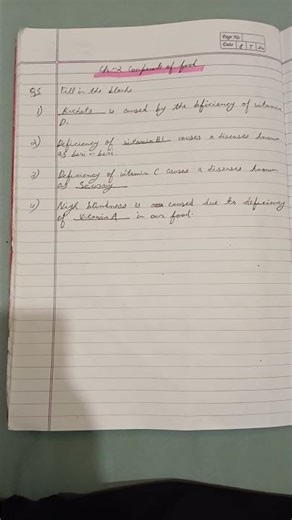 Page No.
Date
Ch-2 Components of food
Q3 Fill in the blanks
1) Rickets is caused by the dificiency of vitamin
D.
2) Deficiency of vitamin B1 causes a diseases known
as beri-beri.
3) Deficiency of vitamin C causes a diseases known
as Scurvy
4) Nigh blindness is caused due to deficiency
of vitamin A in our food.